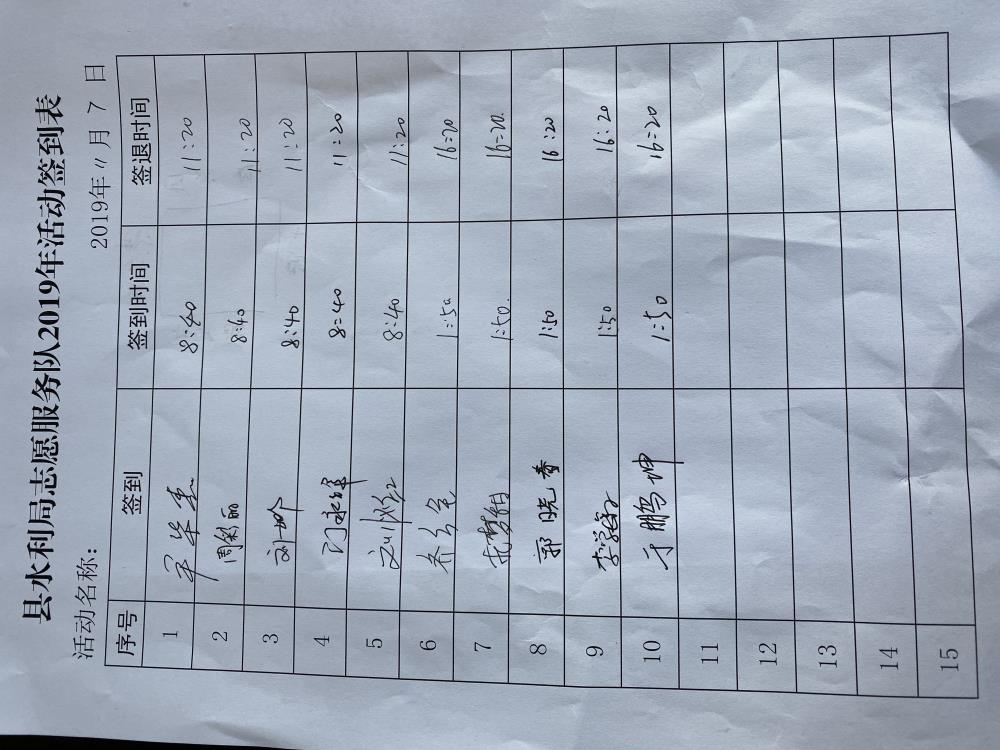 县水利局志愿服务队2019年活动签到表
活动名称： 2019年11月7日
序号 签到 签到时间 签退时间
1 8:40 11:20
2 周彩丽 8:40 11:20
3 刘 8:40 11:20
4 8=40 11=20
5 刘 8:40 11:20
6 1:50 16=20
7 1:50. 16=20.
8 郭晓香 1:50 16:20
9 李 1:50 16:20
10 于鹏坤 1:50 16=20
11
12
13
14
15